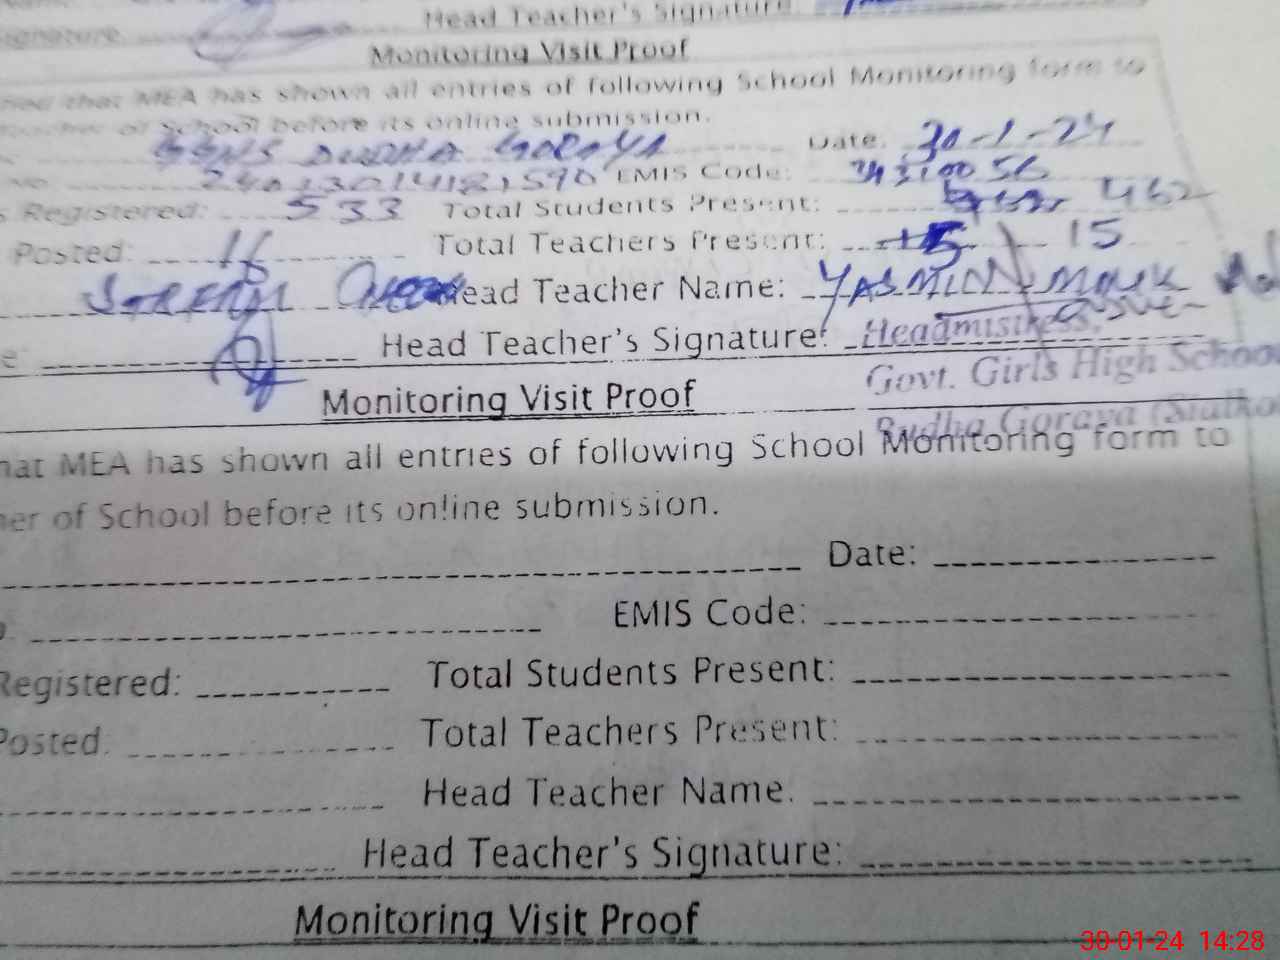 Signature Head Teacher's Signature:
Monitoring Visit Proof
that MEA has shown all entries of following School Monitoring form to
of School before its online submission.
GORAYA Date: 30-1-24
EMIS Code:
s Registered: 533 Total Students Present: 462
Posted: 16 Total Teachers Present: 15
Head Teacher Name: YASMIN
e: Head Teacher's Signature: Headmistress,
Govt. Girls High School
Monitoring Visit Proof
Budha Goraya (Sialko
hat MEA has shown all entries of following School Monitoring form to
her of School before its online submission.
Date:
EMIS Code:
Registered: Total Students Present:
Posted: Total Teachers Present:
Head Teacher Name:
Head Teacher's Signature:
Monitoring Visit Proof
30-01-24 14:28